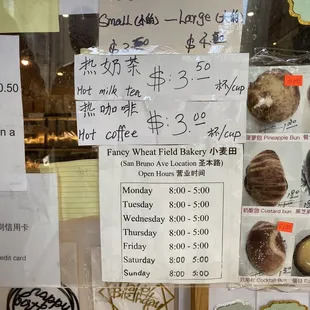 Small (小的) — Large (大的)
热奶茶 $: 3.50
Hot milk tea 杯/cup
热咖啡 $: 3.00
Hot coffee 杯/cup
Fancy Wheat Field Bakery 小麦田
(San Bruno Ave Location 圣本路)
Open Hours 营业时间
Monday 8:00 - 5:00
Tuesday 8:00 - 5:00
Wednesday 8:00 - 5:00
Thursday 8:00 - 5:00
Friday 8:00 - 5:00
Saturday 8:00 - 5:00
Sunday 8:00 5:00
0.50
n a
信用卡
redit card
菠萝包 Pineapple
奶酥包 Custard bun
Happy